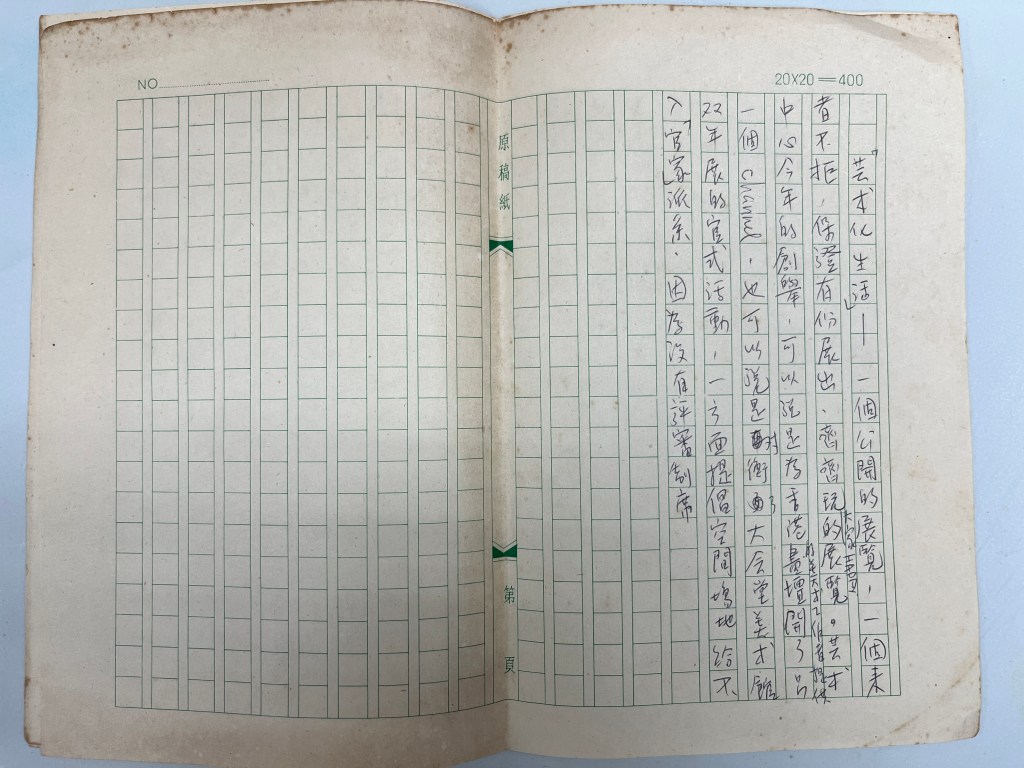 NO
20X20=400
「芸术化生活」——一個公開的展覽，一個来
者不拒，保證有份展出、齊齊玩的展覽。芸术
中心今年的創舉，可以説是為香港畫壇開了
一個channel，也可以説是 衡 大会堂美术館
双年展的官式活動，一方面提倡空間場地給不
入「官家」派系，因為没有評審制席
原稿紙
第 頁